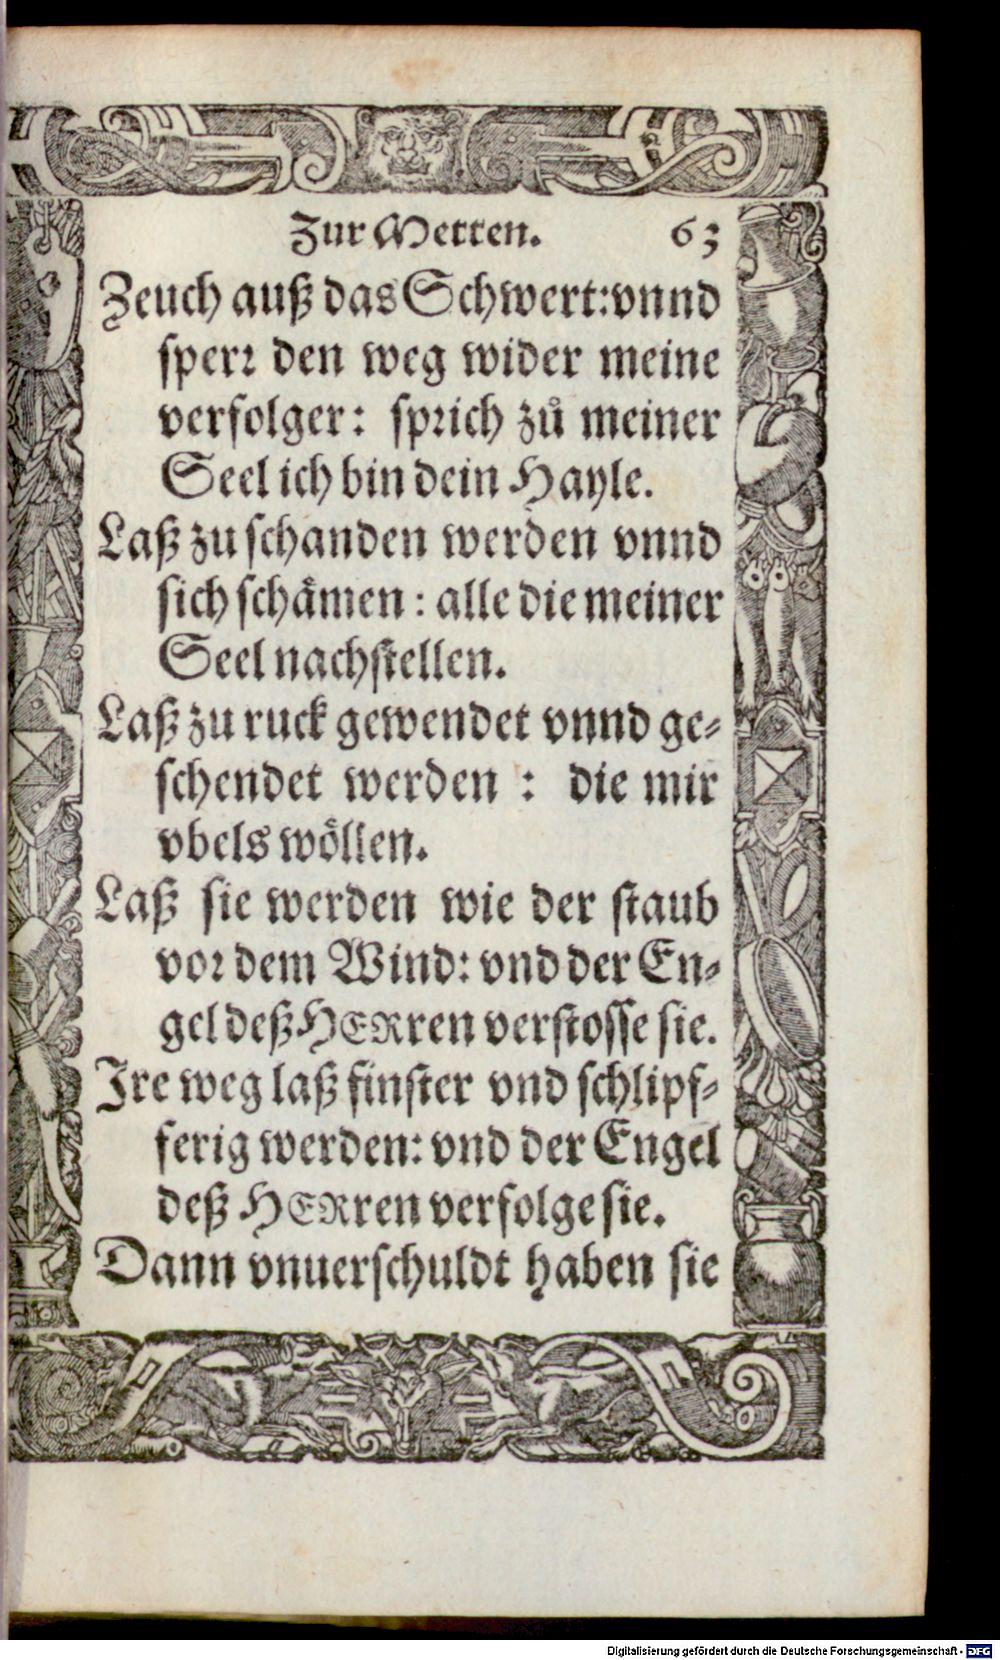 Zur Metten. 63
Zeuch auß das Schwert: vnnd
sperr den weg wider meine
verfolger: sprich zů meiner
Seel ich bin dein Hayle.
Laß zu schanden werden vnnd
sich schämen: alle die meiner
Seel nachstellen.
Laß zu ruck gewendet vnnd ge-
schendet werden : die mir
vbels wöllen.
Laß sie werden wie der staub
vor dem Wind: vnd der En-
gel deß HERren verstosse sie.
Ire weg laß finster vnd schlipf-
ferig werden: vnd der Engel
deß HERren verfolge sie.
Dann vnuerschuldt haben sie
Digitalisierung gefördert durch die Deutsche Forschungsgemeinschaft - DFG